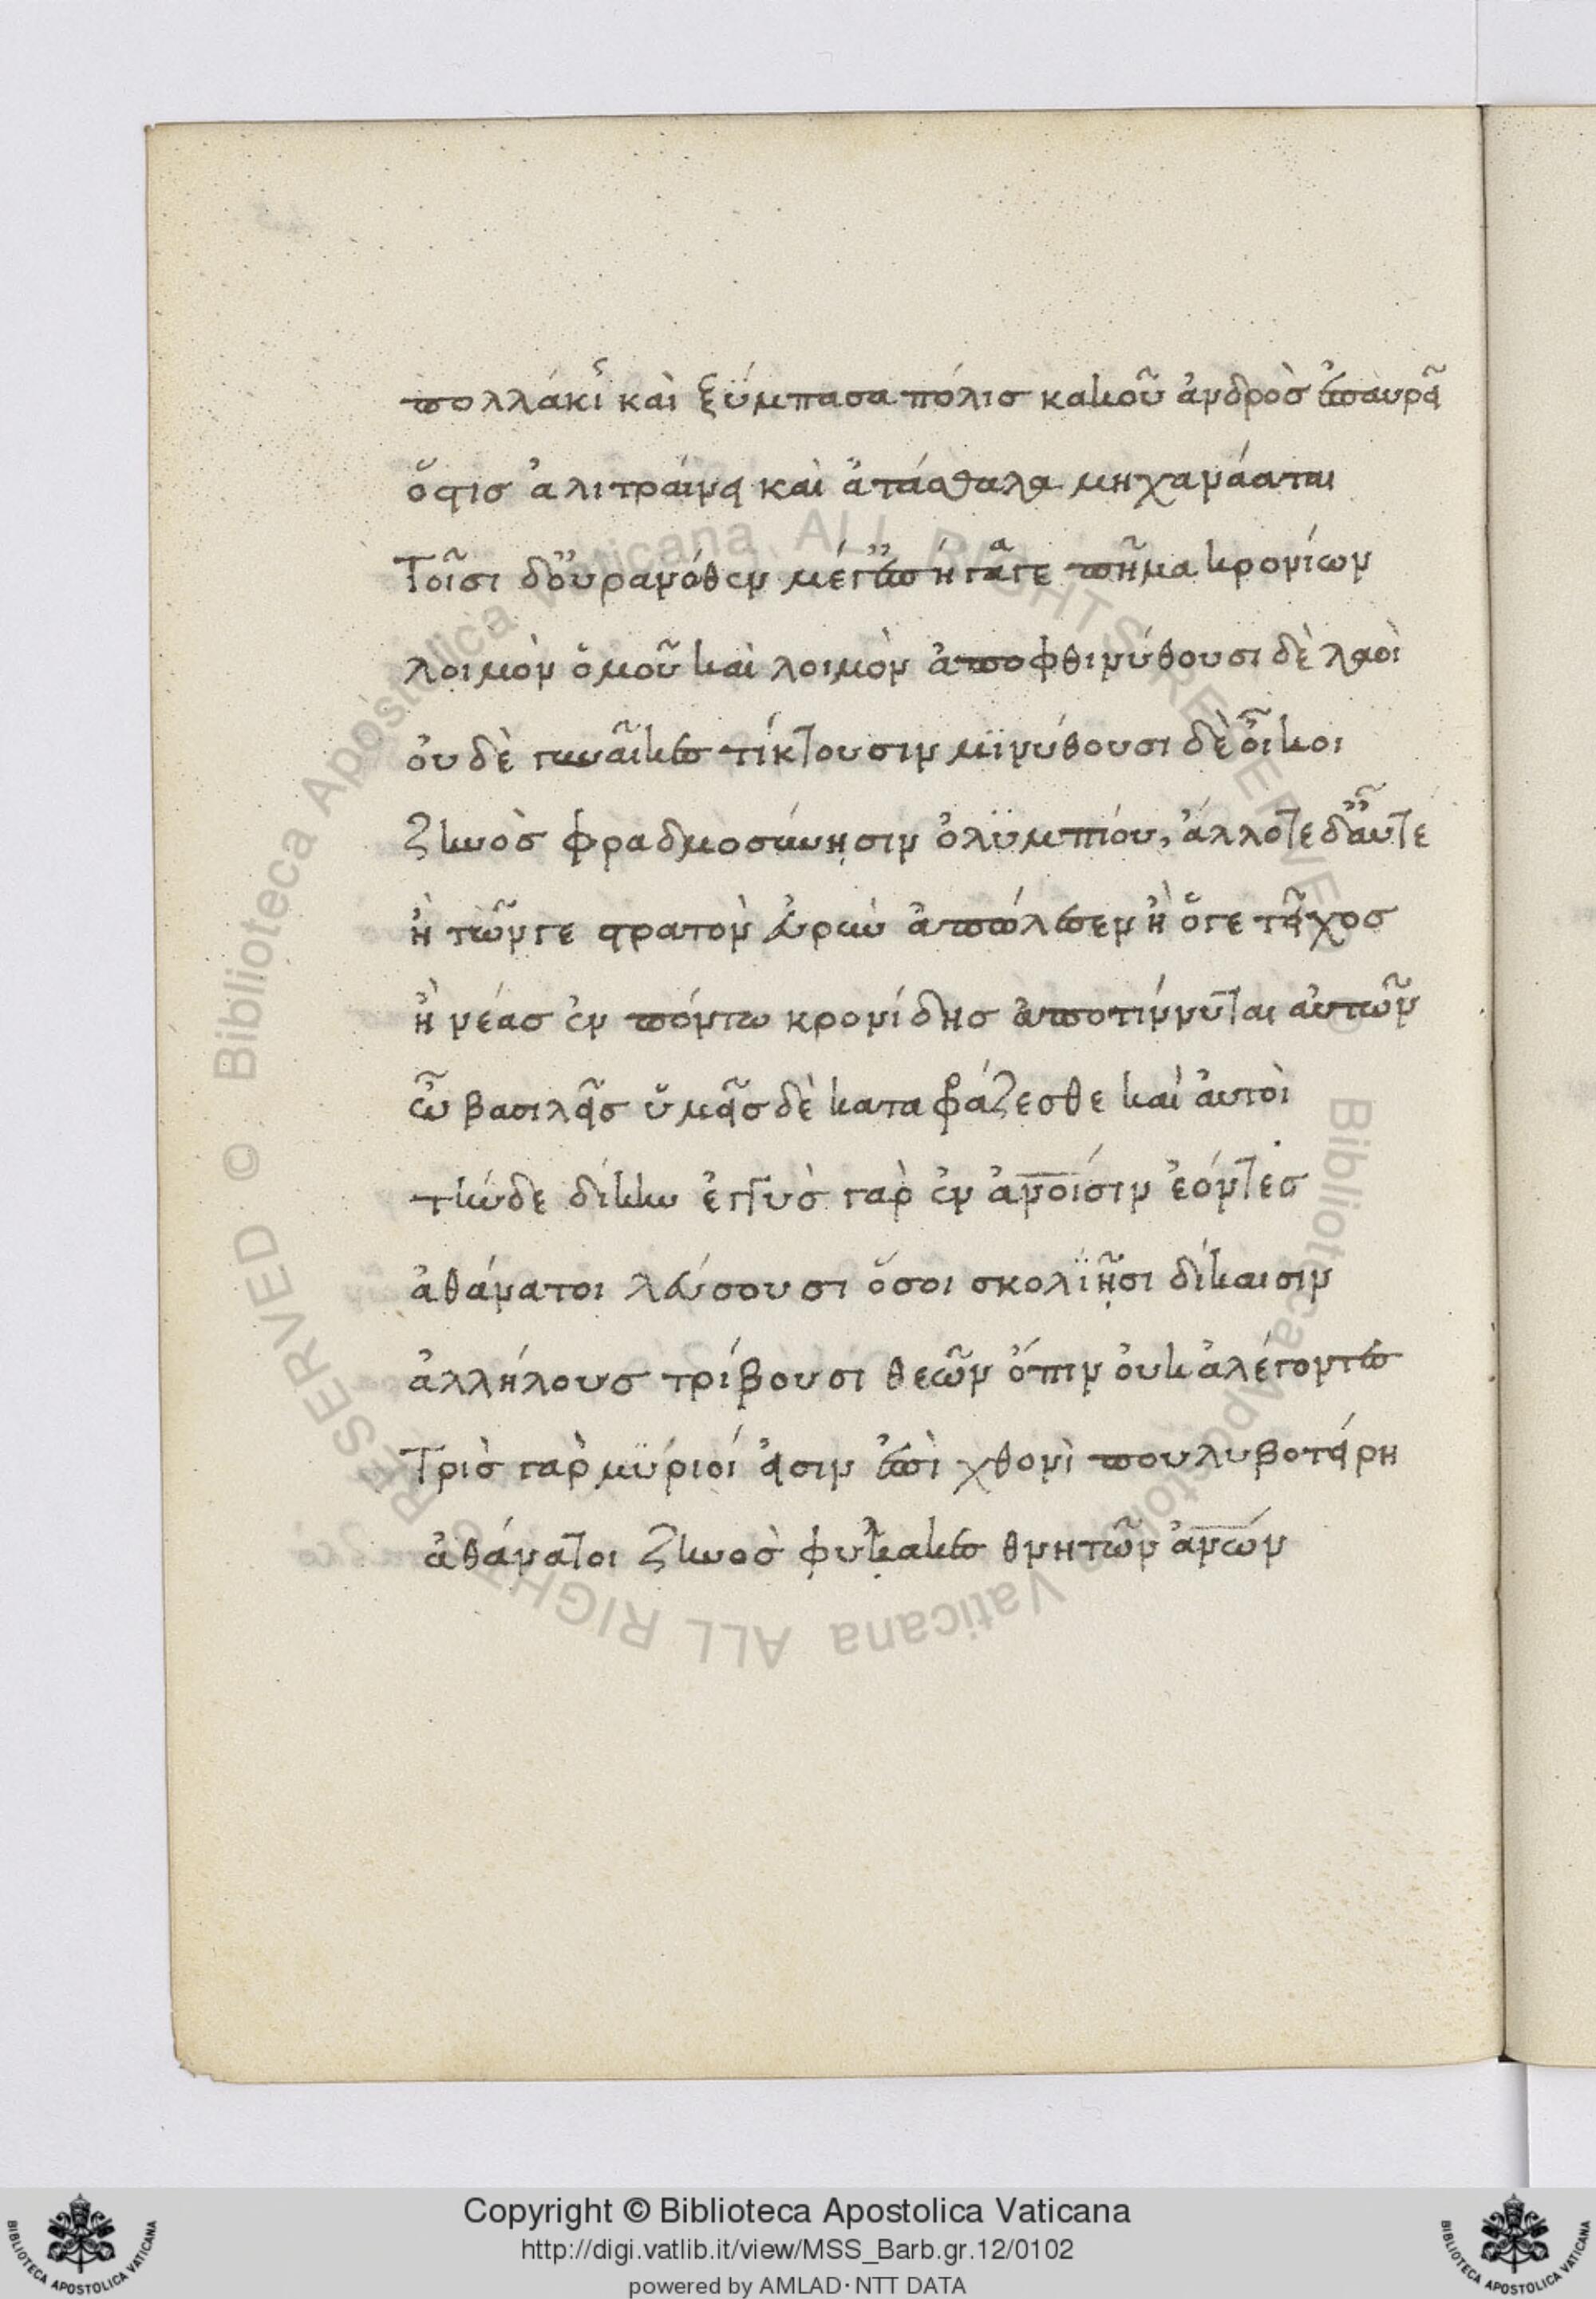 πολλάκι καὶ ξύμπασα πόλις κακοῦ ἀνδρὸς ἐπαυρεῖ
ὅστις ἀλιτραίνει καὶ ἀτάσθαλα μηχανάαται
Τοῖσι δ' οὐρανόθεν μέγ' ἐπήγαγε πῆμα κρονίων
λοιμὸν ὁμοῦ καὶ λοιμὸν ἀποφθινύθουσι δὲ λαοὶ
οὐδὲ γυναῖκες τίκτουσιν μϊνύθουσι δὲ οἶκοι
ζηνὸς φραδμοσύνῃσιν ὀλϋμπίου, ἄλλοτε δ' αὖτε
ἢ τῶν γε στρατὸν εὐρὺν ἀπώλεσεν ἢ ὅγε τεῖχος
ἢ νέας ἐν πόντω κρονίδης ἀποτίννυται αὐτῶν
ὦ βασιλεῖς ὑμεῖς δὲ καταφράζεσθε καὶ αὐτοὶ
τήνδε δίκην ἐγγὺς γὰρ ἐν ἀνοίσιν ἐόντες
ἀθάνατοι λεύσουσι ὅσοι σκολϊῇσι δίκαισιν
ἀλλήλους τρίβουσι θεῶν ὄπιν οὐκ ἀλέγοντες
Τρὶς γὰρ μϋρίοί εἰσιν ἐπὶ χθονὶ πουλυβοτείρη
ἀθάνατοι ζηνὸς φύλακες θνητῶν ἀνών
Copyright © Biblioteca Apostolica Vaticana
http://digi.vatlib.it/view/MSS_Barb.gr.12/0102
powered by AMLAD·NTT DATA